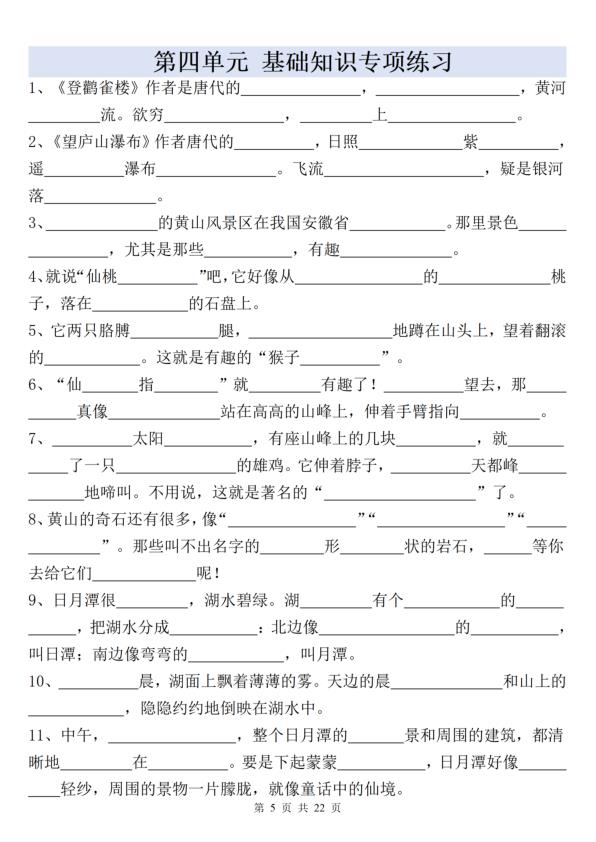 第四单元 基础知识专项练习
1、《登鹳雀楼》作者是唐代的____________,____________,黄河
________流。欲穷____________,________上____________。
2、《望庐山瀑布》作者唐代的________,日照________紫________,
遥________瀑布____________。飞流____________,疑是银河
落____________。
3、____________的黄山风景区在我国安徽省________。那里景色____
________,尤其是那些________,有趣________。
4、就说“仙桃________”吧,它好像从____________的____________桃
子,落在________的石盘上。
5、它两只胳膊________腿,____________地蹲在山头上,望着翻滚
的________。这就是有趣的“猴子________”。
6、“仙______指______”就______有趣了!________望去,那____
________真像____________站在高高的山峰上,伸着手臂指向________。
7、________太阳________,有座山峰上的几块________,就____
____了一只____________的雄鸡。它伸着脖子,________天都峰____
______地啼叫。不用说,这就是著名的“____________”了。
8、黄山的奇石还有很多,像“____________”“____________”“____
________”。那些叫不出名字的______形______状的岩石,____等你
去给它们________呢!
9、日月潭很______,湖水碧绿。湖______有个________的____
____,把湖水分成________:北边像____________的________,
叫日潭;南边像弯弯的________,叫月潭。
10、________晨,湖面上飘着薄薄的雾。天边的晨________和山上的
________,隐隐约约地倒映在湖水中。
11、中午,____________,整个日月潭的____景和周围的建筑,都清
晰地______在______。要是下起蒙蒙________,日月潭好像____
____轻纱,周围的景物一片朦胧,就像童话中的仙境。
第 5 页 共 22 页